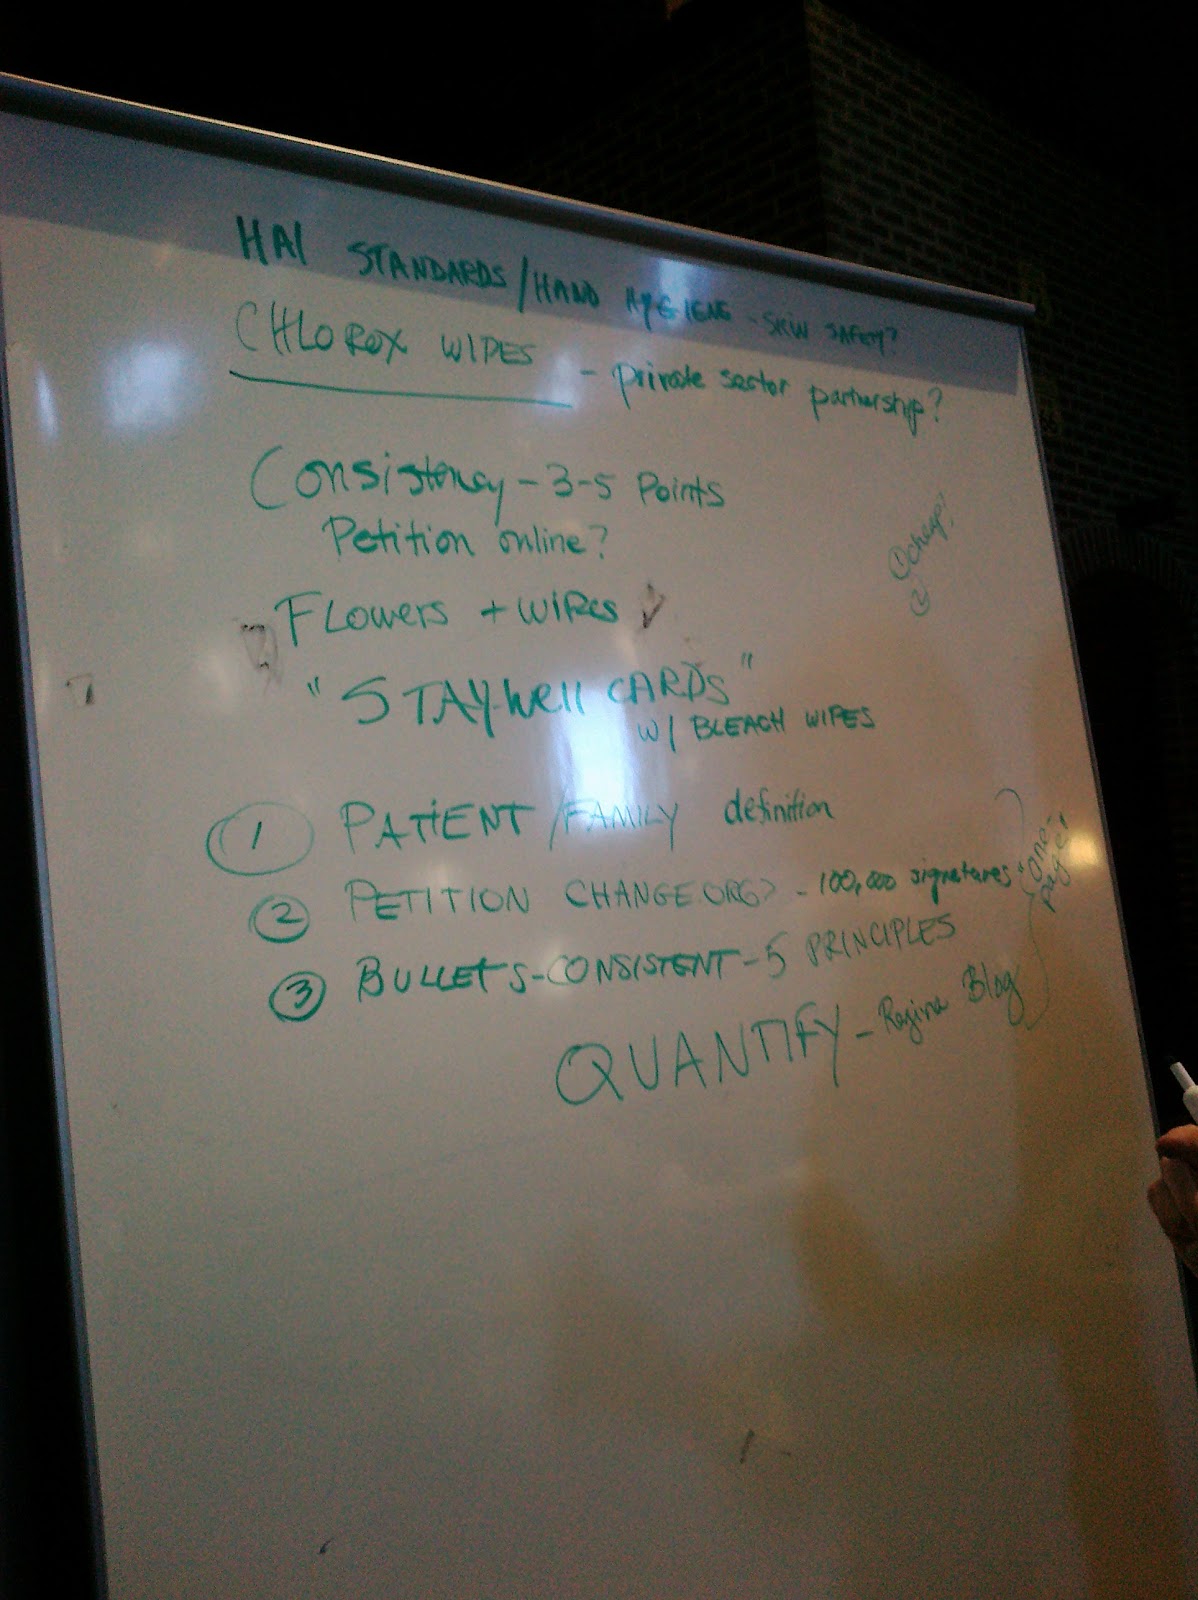 HAI STANDARDS/HAND HYGIENE - SKIN SAFETY?
CHLOROX WIPES - private sector partnership?
Consistency - 3-5 Points
Petition online?
① cheap?
②
FLOWERS + WIPES
"STAY-WELL CARDS"
W/ BLEACH WIPES
① PATIENT/FAMILY definition
② PETITION CHANGE.ORG? - 100,000 signatures
③ BULLETS-CONSISTENT-5 PRINCIPLES
"one-
pager
QUANTIFY - Regina Blog